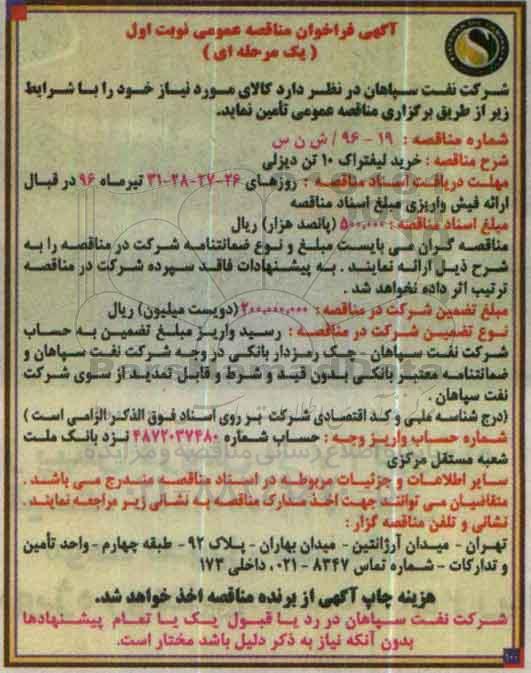 آگهی فراخوان مناقصه عمومی نوبت اول
( یک مرحله ای )
شرکت نفت سپاهان در نظر دارد کالای مورد نیاز خود را با شرایط
زیر از طریق برگزاری مناقصه عمومی تأمین نماید.
شماره مناقصه : ۱۹ - ۹۶ / ش ن س
شرح مناقصه : خرید لیفتراک ۱۰ تن دیزلی
مهلت دریافت اسناد مناقصه : روزهای ۲۶-۲۷-۲۸-۳۱ تیرماه ۹۶ در قبال
ارائه فیش واریزی مبلغ اسناد مناقصه
مبلغ اسناد مناقصه : ۵۰۰,۰۰۰ (پانصد هزار) ریال
مناقصه گران می بایست مبلغ و نوع ضمانتنامه شرکت در مناقصه را به
شرح ذیل ارائه نمایند . به پیشنهادات فاقد سپرده شرکت در مناقصه
ترتیب اثر داده نخواهد شد .
مبلغ تضمین شرکت در مناقصه : ۲۰۰,۰۰۰,۰۰۰ (دویست میلیون) ریال
نوع تضمین شرکت در مناقصه : رسید واریز مبلغ تضمین به حساب
شرکت نفت سپاهان - چک رمزدار بانکی در وجه شرکت نفت سپاهان و
ضمانتنامه معتبر بانکی بدون قید و شرط و قابل تمدید از سوی شرکت
نفت سپاهان .
(درج شناسه ملی و کد اقتصادی شرکت بر روی اسناد فوق الذکر الزامی است )
شماره حساب واریز وجه : حساب شماره ۴۸۷۲۰۳۷۴۸۰ نزد بانک ملت
شعبه مستقل مرکزی
سایر اطلاعات و جزئیات مربوطه در اسناد مناقصه مندرج می باشد .
متقاضیان می توانند جهت اخذ مدارک مناقصه به نشانی زیر مراجعه نمایند .
نشانی و تلفن مناقصه گزار :
تهران - میدان آرژانتین - میدان بهاران - پلاک ۹۲ - طبقه چهارم - واحد تأمین
و تدارکات - شماره تماس ۸۳۴۷ - ۰۲۱ ، داخلی ۱۷۳
هزینه چاپ آگهی از برنده مناقصه اخذ خواهد شد.
شرکت نفت سپاهان در رد یا قبول یک یا تمام پیشنهادها
بدون آنکه نیاز به ذکر دلیل باشد مختار است.
۱۰۰